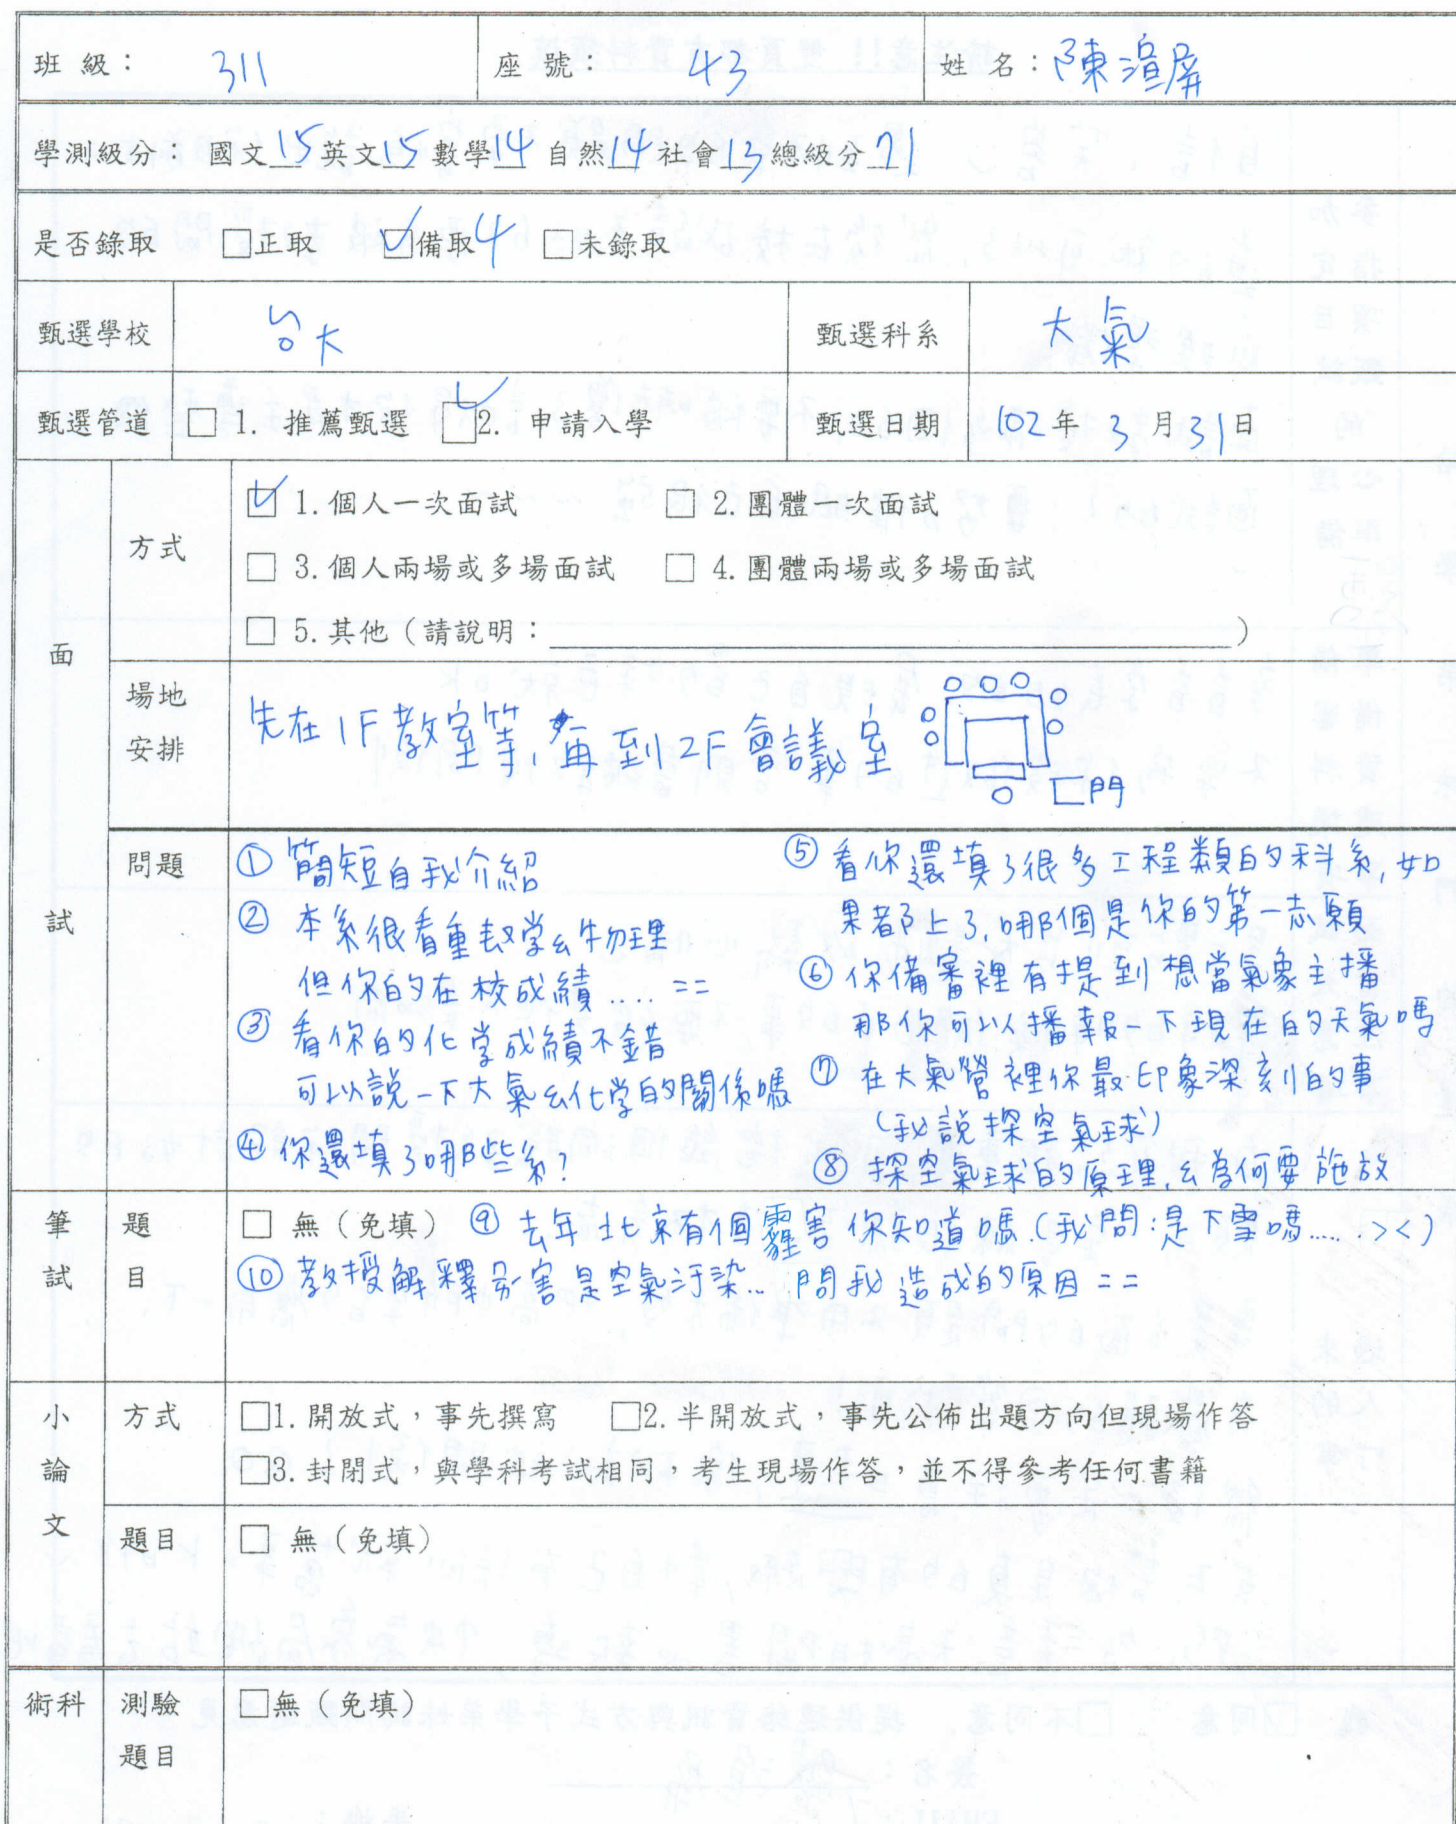 班級： 311 座號： 43 姓名：陳渲屏
學測級分： 國文15英文15數學14自然14社會13總級分71
是否錄取 □正取 ☑備取4 □未錄取
甄選學校 台大 甄選科系 大氣
甄選管道 □ 1. 推薦甄選 ☑2. 申請入學 甄選日期 102年3月31日
面試
方式
☑ 1.個人一次面試 □ 2.團體一次面試
□ 3.個人兩場或多場面試 □ 4.團體兩場或多場面試
□ 5.其他（請說明：＿＿＿＿）
場地安排
先在1F教室等,再到2F會議室
門
問題
① 簡短自我介紹
② 本系很看重數学&物理
但你的在校成績.... ==
③ 看你的化学成績不錯
可以說一下大氣&化学的關係嗎
④ 你還填了哪些系?
⑤ 看你還填了很多工程類的科系,如
果都上了,哪個是你的第一志願
⑥ 你備審裡有提到想當氣象主播
那你可以播報一下現在的天氣嗎
⑦ 在大氣營裡你最印象深刻的事
(我說探空氣球)
⑧ 探空氣球的原理,&為何要施放
筆試
題目
□ 無（免填） ⑨ 去年北京有個霾害你知道嗎.(我問:是下雪嗎.....><)
⑩ 教授解釋 害是空氣汙染...問我造成的原因==
小論文
方式
□1.開放式，事先撰寫 □2.半開放式，事先公佈出題方向但現場作答
□3.封閉式，與學科考試相同，考生現場作答，並不得參考任何書籍
題目
□ 無（免填）
術科
測驗題目
□無（免填）